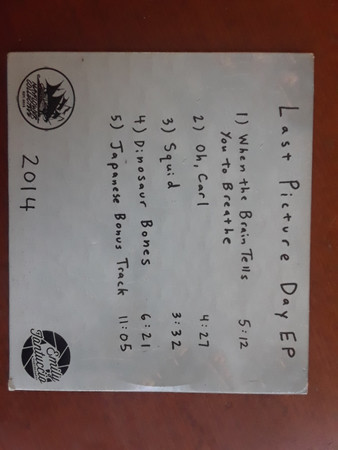 Last Picture Day EP
1) When the Brain Tells
You to Breathe 5:12
2) Oh, Carl 4:27
3) Squid 3:32
4) Dinosaur Bones 6:21
5) Japanese Bonus Track 11:05
2014
Emily
Tantuccio